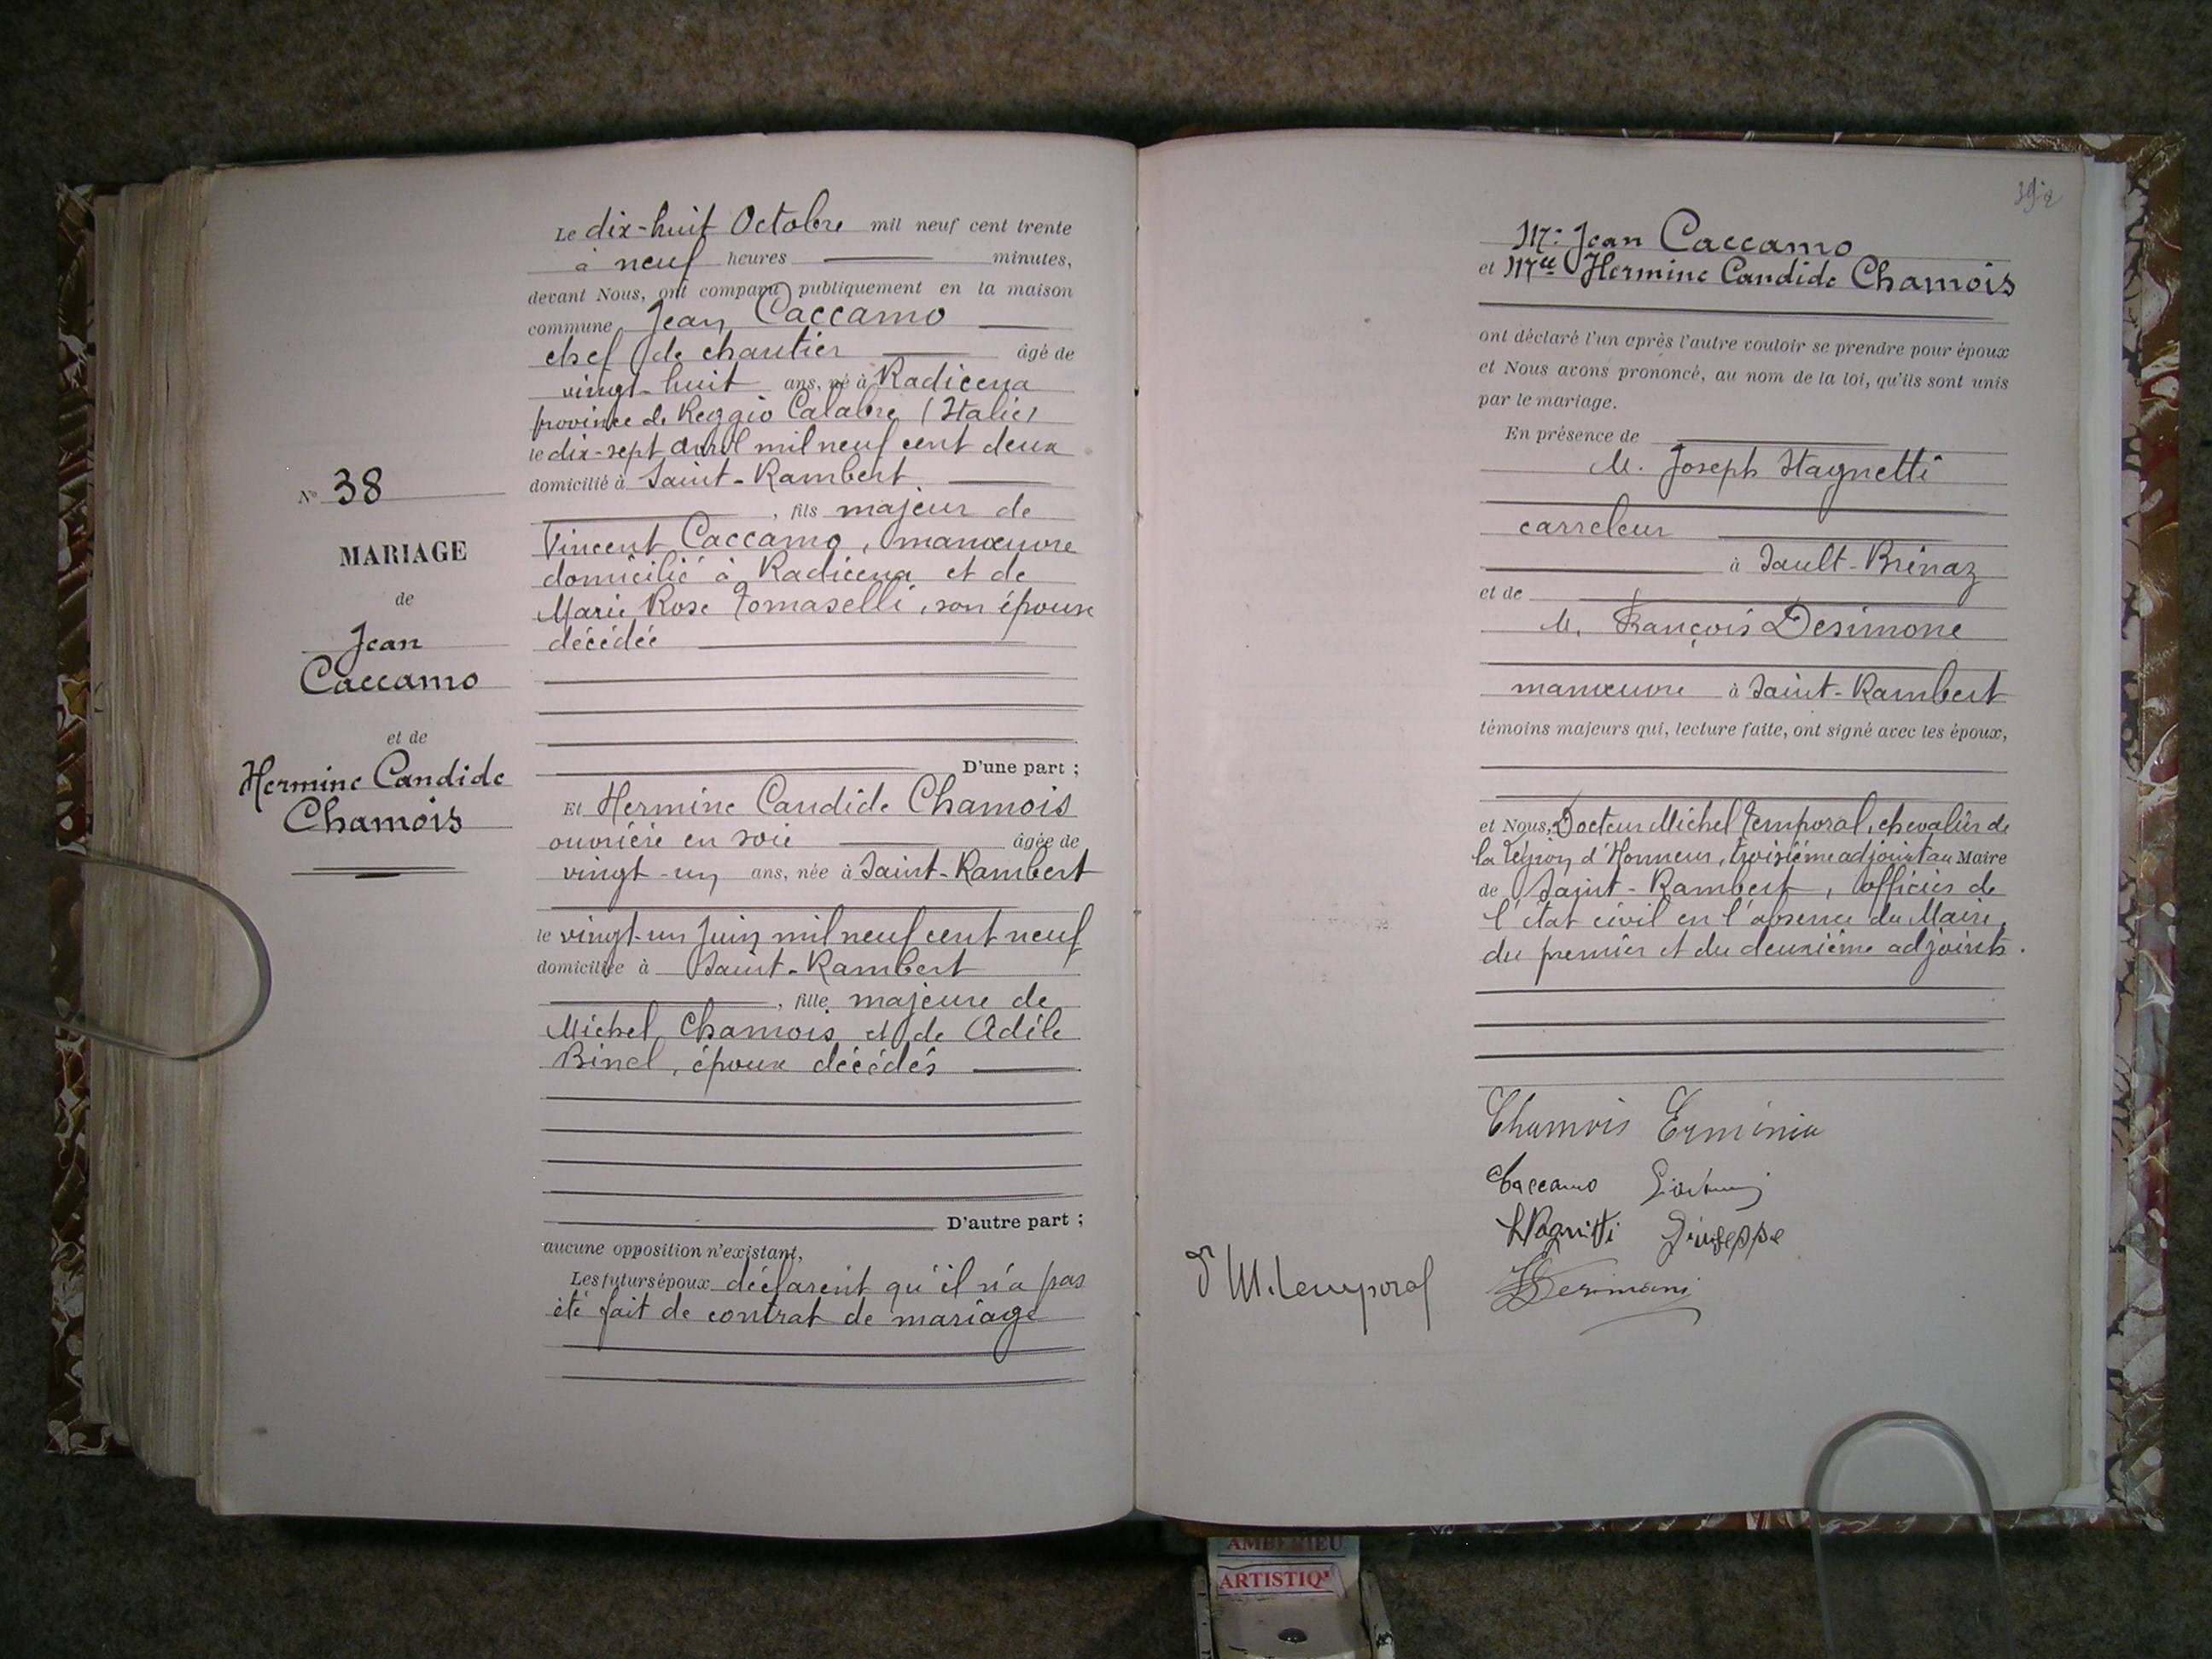 N° 38
MARIAGE
de
Jean
Caccamo
et de
Hermine Candide
Chamois
Le dix-huit Octobre mil neuf cent trente
à neuf heures minutes,
devant Nous, ont comparu publiquement en la maison
commune Jean Caccamo
chef de chantier âgé de
vingt-huit ans, né à Radicena
province de Reggio Calabre (Italie)
le dix-sept avril mil neuf cent deux
domicilié à Saint-Rambert
, fils majeur de
Vincent Caccamo, manœuvre
domicilié à Radicena et de
Marie Rose Tomaselli, son épouse
décédée
D'une part ;
Et Hermine Candide Chamois
ouvrière en soie âgée de
vingt-un ans, née à Saint-Rambert
le vingt-un Juin mil neuf cent neuf
domiciliée à Saint-Rambert
, fille majeure de
Michel Chamois et de Adèle
Binel, époux décédés
D'autre part ;
aucune opposition n'existant,
Les futurs époux déclarent qu'il n'a pas
été fait de contrat de mariage
M. Jean Caccamo
et Mlle Hermine Candide Chamois
ont déclaré l'un après l'autre vouloir se prendre pour époux
et Nous avons prononcé, au nom de la loi, qu'ils sont unis
par le mariage.
En présence de
M. Joseph Stagnetti
carreleur
à Sault-Brénaz
et de
M. François Desimone
manœuvre à Saint-Rambert
témoins majeurs qui, lecture faite, ont signé avec les époux,
et Nous, Docteur Michel Temporal, chevalier de
la Légion d'Honneur, troisième adjoint au Maire
de Saint-Rambert, officier de
l'état civil en l'absence du Maire,
du premier et du deuxième adjoints.
Chamois Erminia
Caccamo
Giuseppe
Dr M. Temporal
AMBERIEU
ARTISTIQ